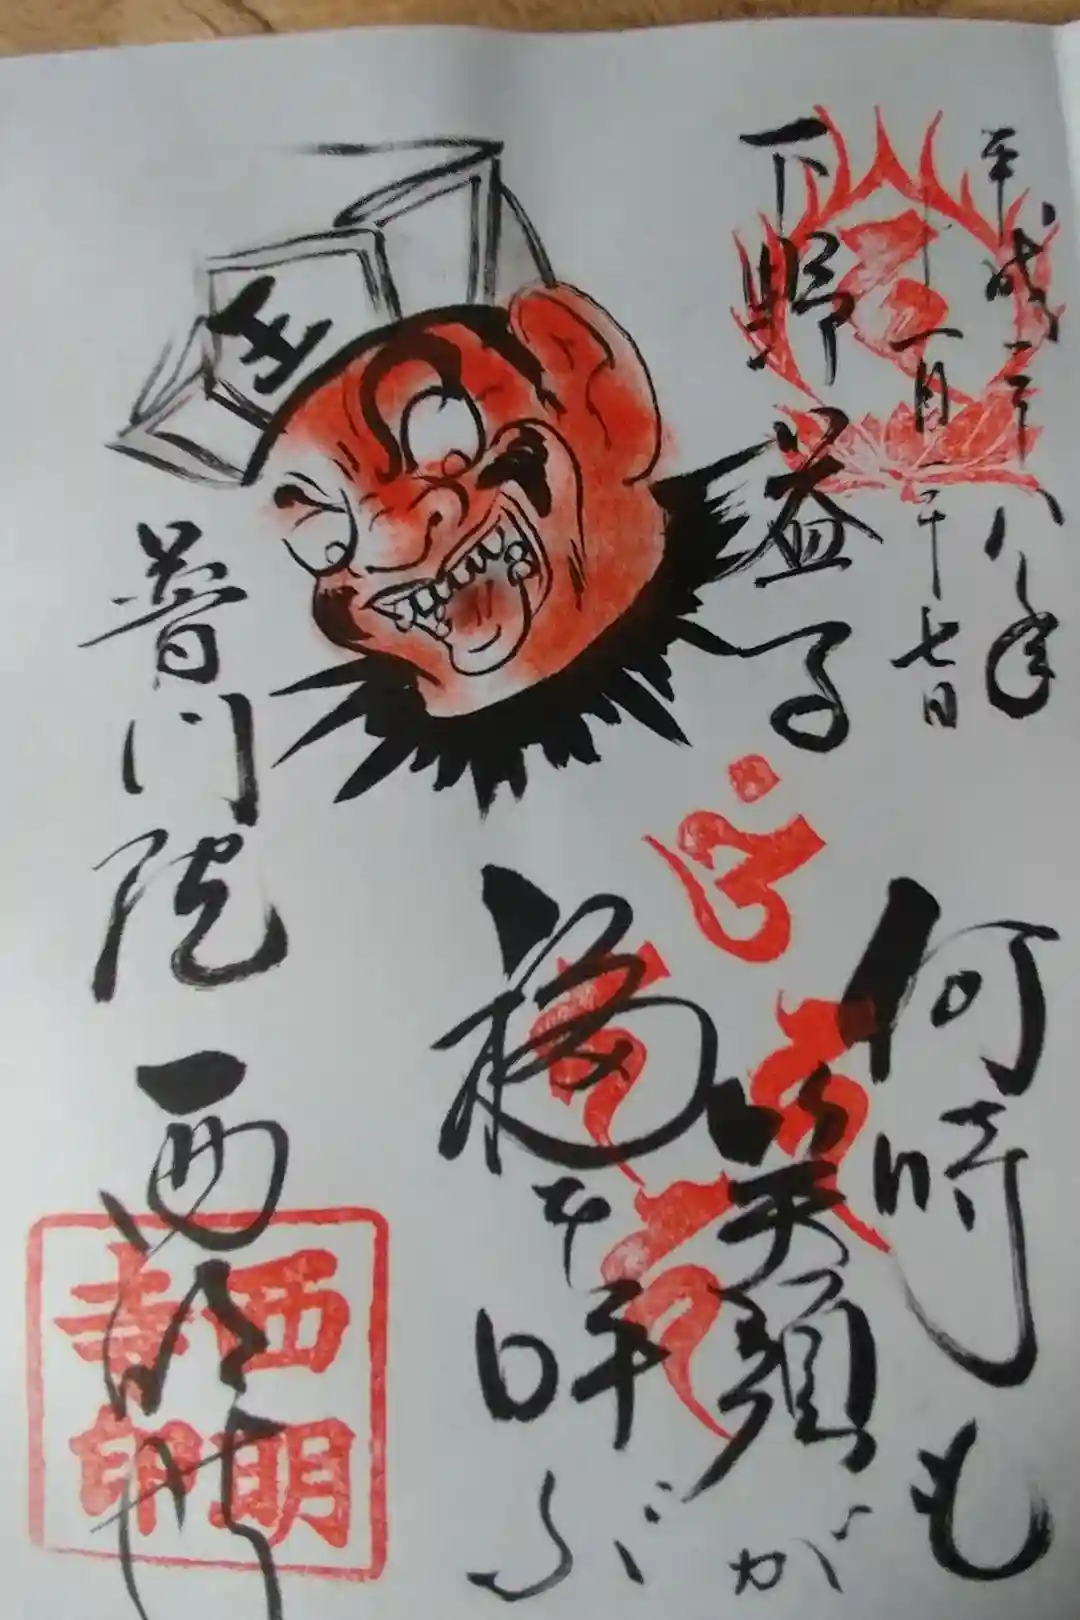 平成二十八年
十一月二十七日
下野 益子
何時も
笑顔が
福を呼ぶ
王
普門院 西明寺
西明
寺印